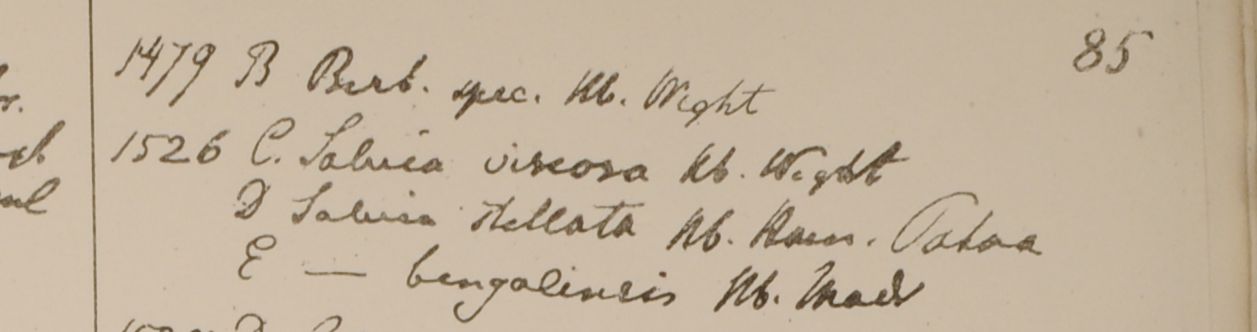 85
1479 B Berb. spec. Hb. Wight
1526 C. Salvia viscosa Hb. Wight
D Salvia stellata Hb. Ham. Patna
E — bengalensis Hb. Madr